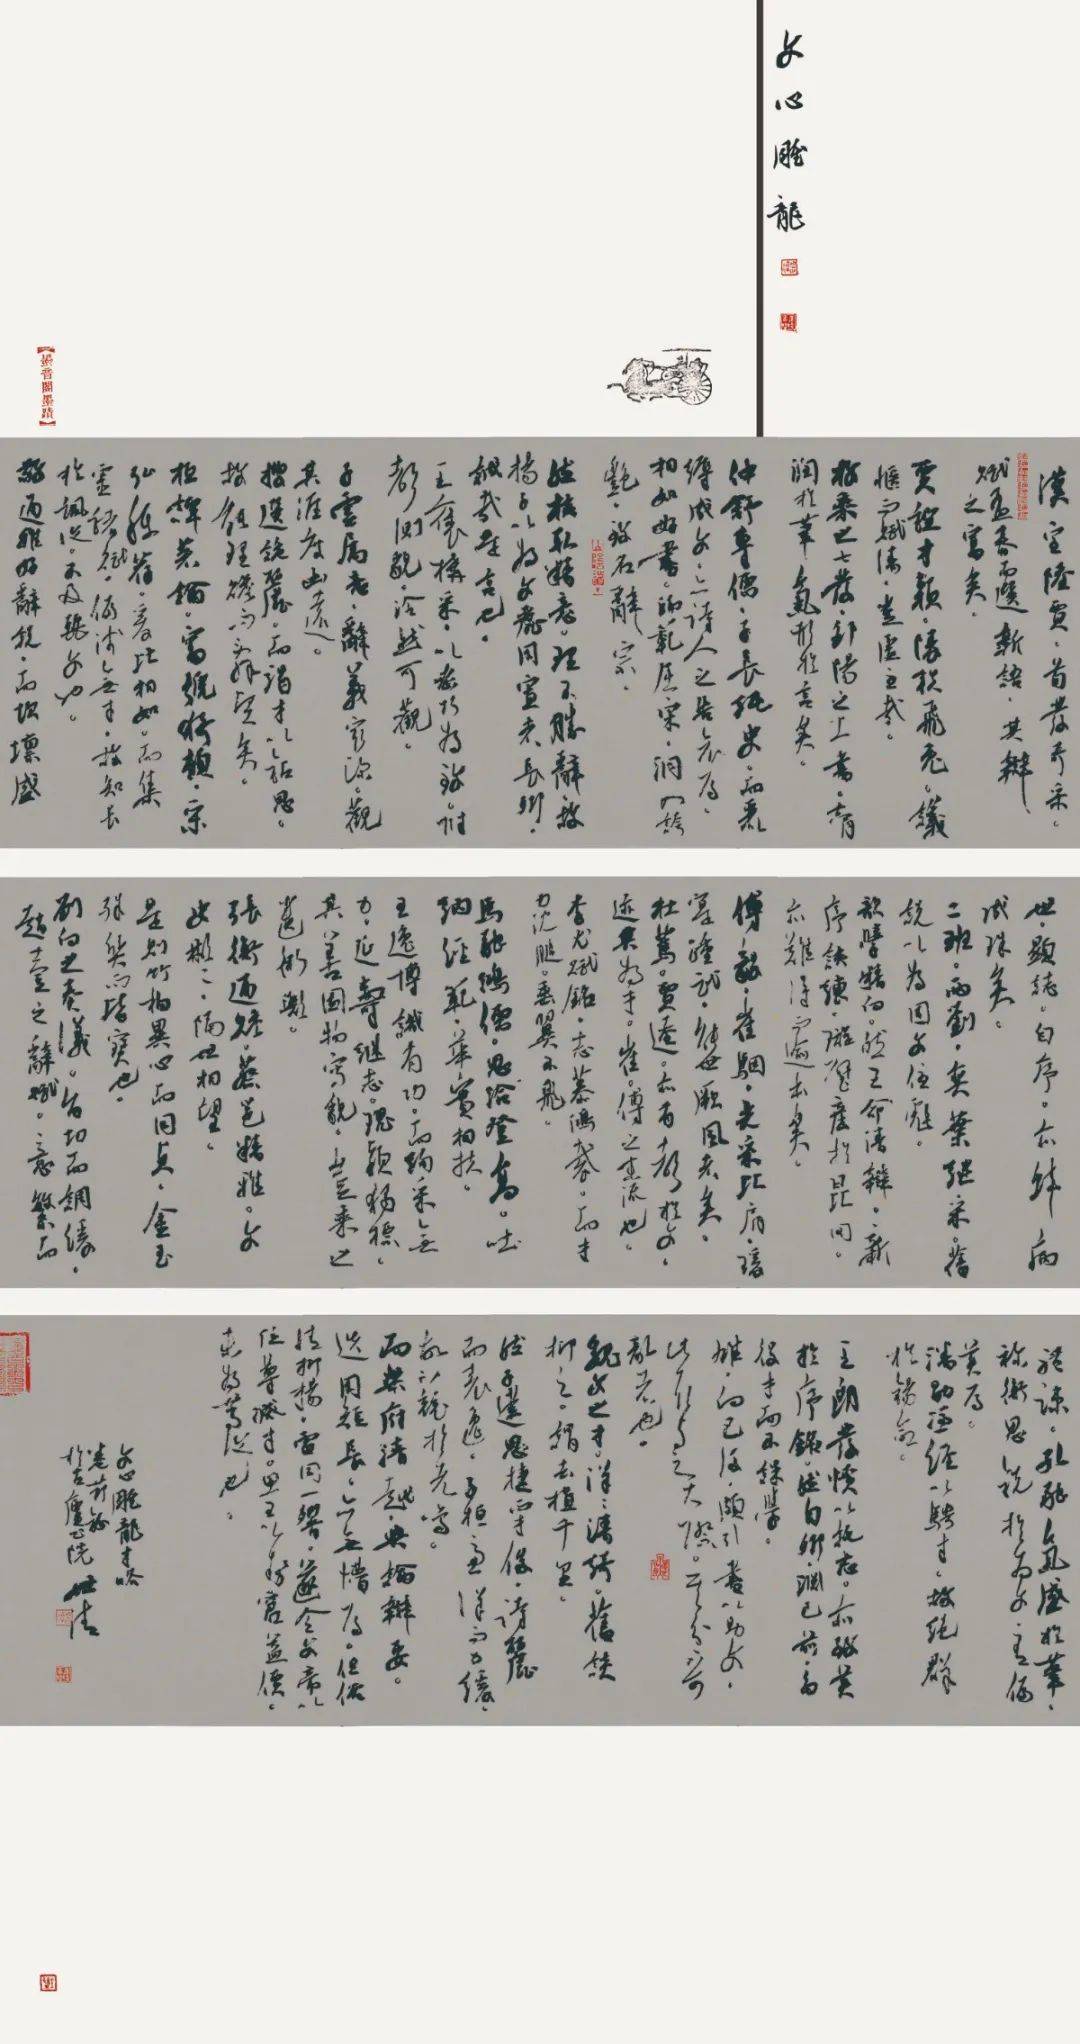 文心雕龍
漢室陸賈。首發奇采。
賦孟春而選新語。其辯
之富矣。
賈誼才穎。陵軼飛兔。議
愜而賦清。豈虛至哉。
枚乘之七發。鄒陽之上書。膏
潤於筆。氣形於言矣。
仲舒專儒。子長純史。而麗
縟成文。亦詩人之告哀焉。
相如好書。師範屈宋。洞入誇
艷。致名辭宗。
然核取精意。理不勝辭。故
揚子以為文麗用寡者長卿。
誠哉是言也。
王褒構采。以密巧為致。附
聲測貌。泠然可觀。
子雲屬意。辭義最深。觀
其涯度幽遠。
搜選詭麗。而竭才以鑽思。
故能理贍而辭堅矣。
桓譚著論。富號猗頓。宋
弘稱薦。爰比相如。而集
靈諸賦。偏淺無才。故知長
於諷諭。不及麗文也。
敬通雅好辭說。而坎壈盛
世。顯志自序。亦蚌病
成珠矣。
二班兩劉。奕葉繼采。舊
說以為固文優彪。
歆學精向。然王命清辯。新
序該練。璿璧產於昆岡。
亦難得而逾本矣。
傅毅崔駰。光采比肩。瑗
寔踵武。能世厥風者矣。
杜篤賈逵。亦有聲於文。
跡其為才。崔傅之末流也。
李尤賦銘。志慕鴻裁。而才
力沈膇。垂翼不飛。
馬融鴻儒。思洽登高。吐
納經範。華實相扶。
王逸博識有功。而絢采無
力。延壽繼志。瑰穎獨標。
其善圖物寫貌。豈枚乘之
遺術歟。
張衡通贍。蔡邕精雅。文
史彬彬。隔世相望。
是則竹柏異心而同貞。金玉
殊質而皆寶也。
劉向之奏議。旨切而調緩。
趙壹之辭賦。意繁而
體疎。孔融氣盛於筆。
禰衡思銳於為文。有偏
美焉。
潘勖憑經以騁才。故絕群
於錫命。
王朗發憤以託志。亦致美
於序銘。然自卿淵已前。多
役才而不課學。
雄向已後。頗引書以助文。
此取與之大際。其分不可
亂者也。
魏文之才。洋洋清綺。舊談
抑之。謂去植千里。
然子建思捷而才俊。詩麗
而表逸。子桓慮詳而力緩。
故不競於先鳴。
而樂府清越。典論辯要。
迭用短長。亦無懵焉。但俗
情抑揚。雷同一響。遂令文帝以
位尊減才。思王以勢窘益價。
未為篤論也。
文心雕龍才略